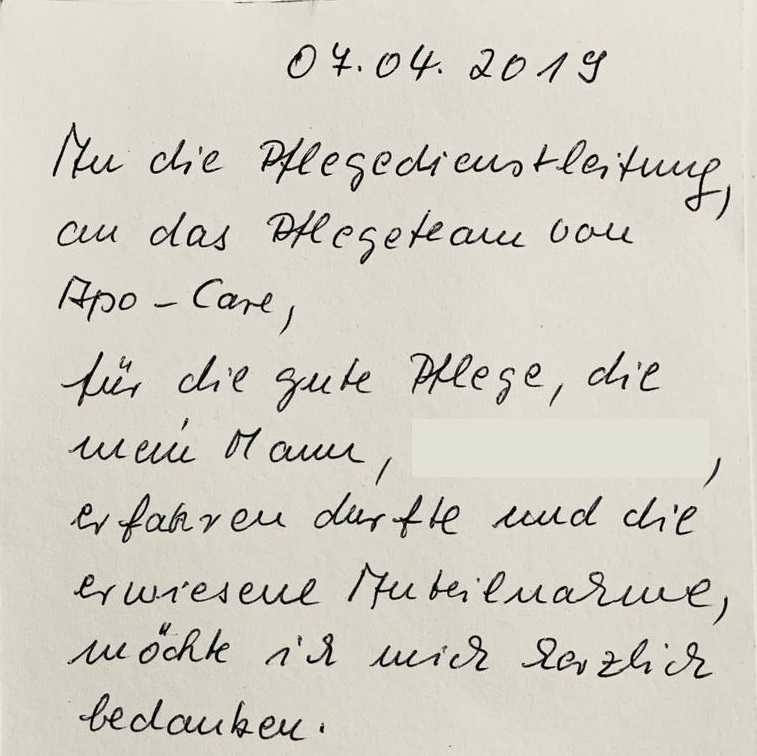 07.04.2019
An die Pflegedienstleitung,
an das Pflegeteam von
Apo-Care,
für die gute Pflege, die
mein Mann, ,
erfahren durfte und die
erwiesene Anteilnahme,
möchte ich mich herzlich
bedanken.